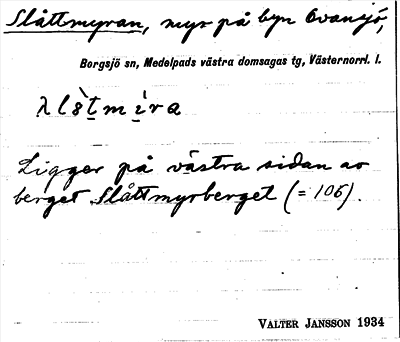 Slåttmyran, myr på byn Ovansjö,
Borgsjö sn, Medelpads västra domsagas tg, Västernorrl. l.
Ligger på västra sidan av
berget Slåttmyrberget (= 106).
VALTER JANSSON 1934